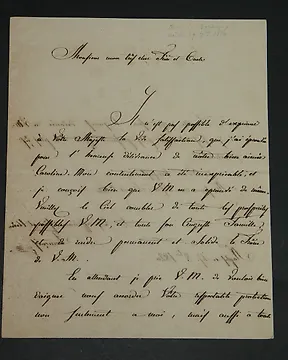 Monsieur mon très cher Frère et Oncle
Il n'est pas possible d'exprimer
à Votre Majesté la vive satisfaction, que j'ai éprouvée
pour l'heureuse délivrance de notre bien aimée
Caroline. Mon contentement a été inexprimable, et
je conçois bien que V. M. en a agi de même.
Veuille le Ciel combler de toute les prospérités
V. M. et toute son Auguste Famille,
rendre permanent et solide le Trône
de V. M.
En attendant je prie V. M. de vouloir bien
daigner nous accorder Votre respectable protection
non seulement a moi, mais aussi à toute